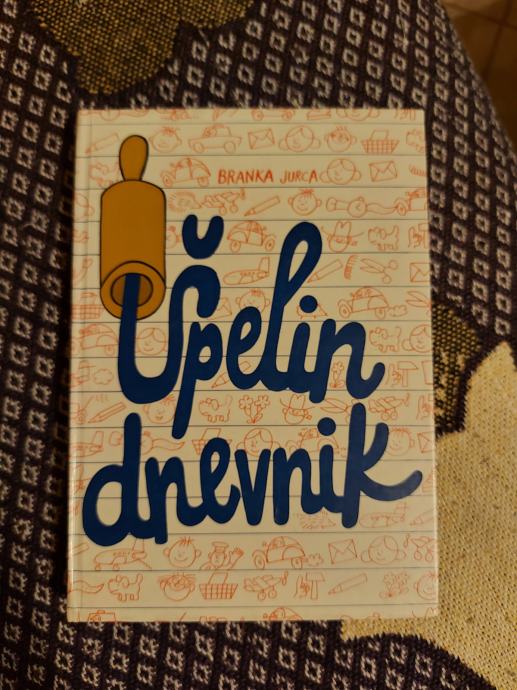 BRANKA JURCA
Špelin
dnevnik